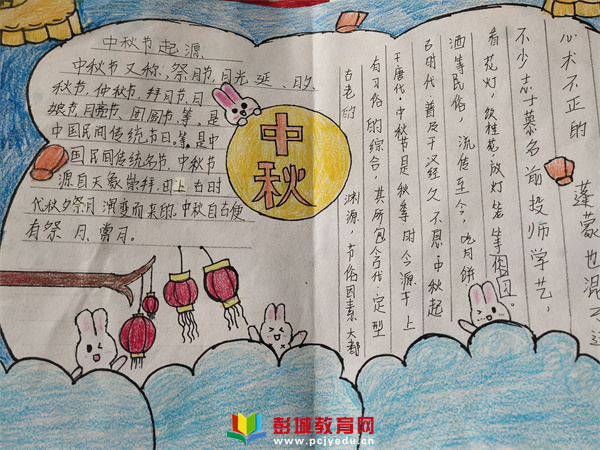 中秋节起源
中秋节又称,祭月节,月光延、的,
秋节,仲秋节,拜月节,月
娘节,月亮节、团圆节,等,是
中国民间传统节日。等,是中
国民间传统名节,中秋节
源自天象崇拜,由上古时
代秋夕祭月演变而来的。中秋自古便
有祭月、赏月。
中
秋
心术不正的
蓬蒙也混
不少志士慕名前投师学艺,
看花灯,饮桂花,放灯笼等俗
酒等民俗 流传至今,吃月饼
古时代 普及于汉 经久不息,中秋起
于唐代,中秋节是秋季时令源于上
有习俗的综合,其所包含 定型
古老的 渊源,节俗因素大都
彭城教育网
www.pcjyedu.cn